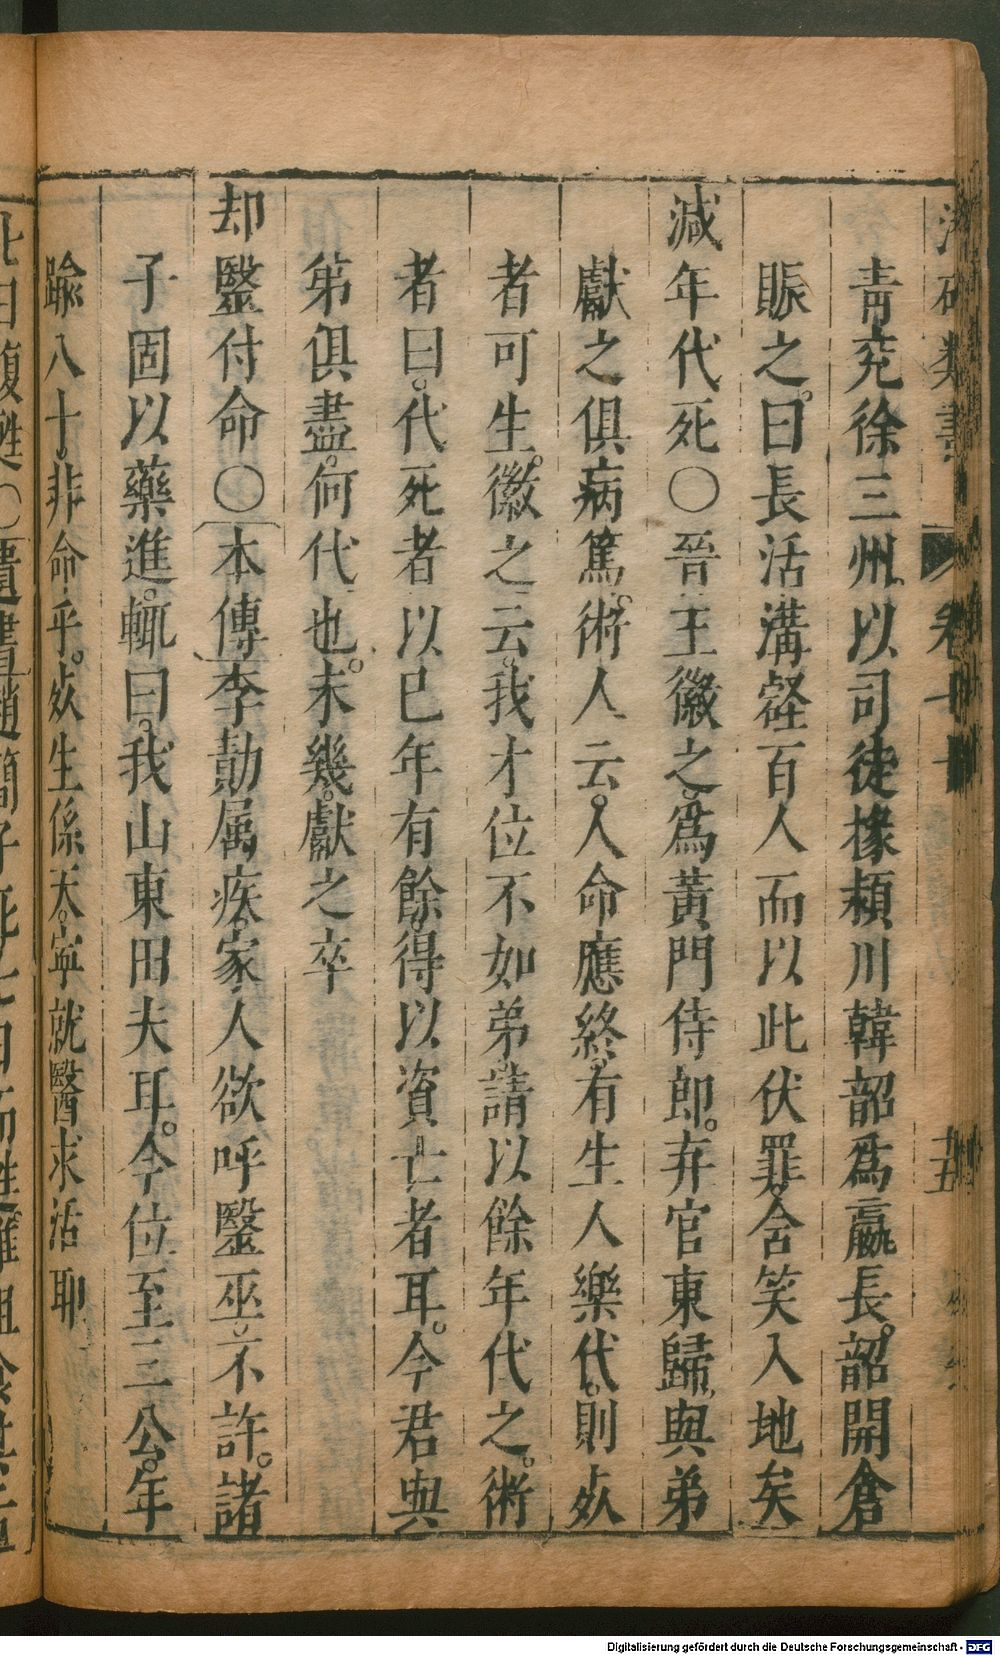 青兗徐三州以司徒掾潁川韓韶爲嬴長韶開倉
賑之曰長活溝壑百人而以此伏罪含笑入地矣
減年代死○晉王徽之爲黃門侍郎弃官東歸與弟
獻之俱病篤術人云人命應終有生人樂代則死
者可生徽之云我才位不如弟請以餘年代之術
者曰代死者以已年有餘得以資亡者耳今君與
弟俱盡何代也未幾獻之卒
却毉付命○本傳李勣属疾家人欲呼毉巫不許諸
子固以藥進輒曰我山東田夫耳今位至三公年
踰八十非命乎死生係天寧就醫求活耶
Digitalisierung gefördert durch die Deutsche Forschungsgemeinschaft - DFG